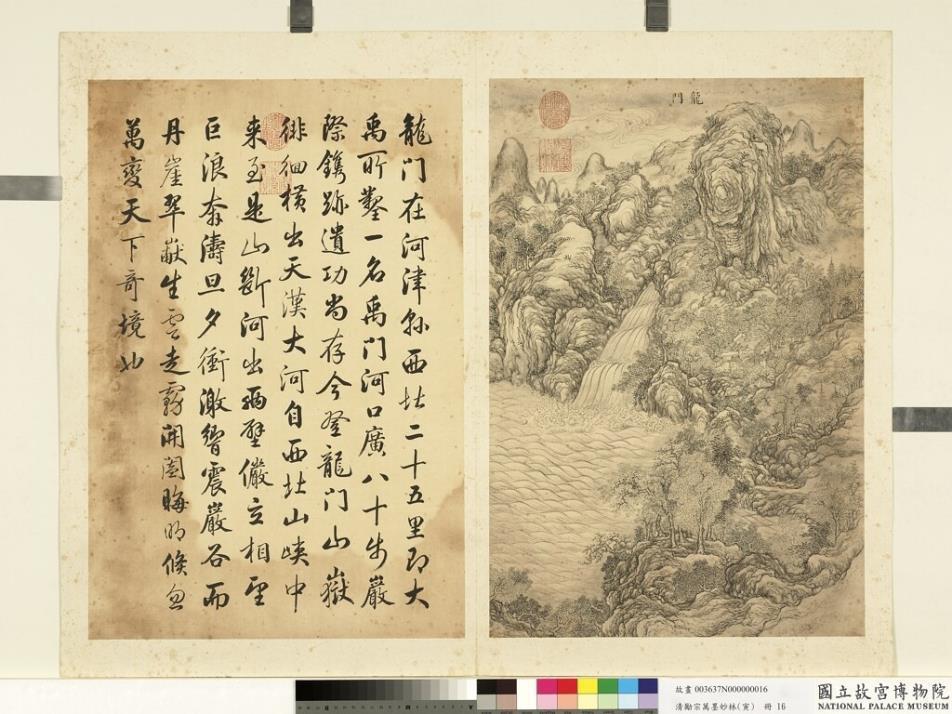 龍門在河津縣西北二十五里即大
禹所鑿一名禹門河口廣八十步巖
際鐫跡遺功尚存今登龍門山嶽
徘徊橫出天漢大河自西北山峽中
来至是山斷河出兩壁儼立相望
巨浪奔濤旦夕衝激響震巖谷而
丹崖翠巘生雲走霧開闔晦明倏忽
萬變天下奇境也
龍門
故畫 003637N000000016
清勵宗萬墨妙珠林(寅) 冊 16
國立故宮博物院
NATIONAL PALACE MUSEUM